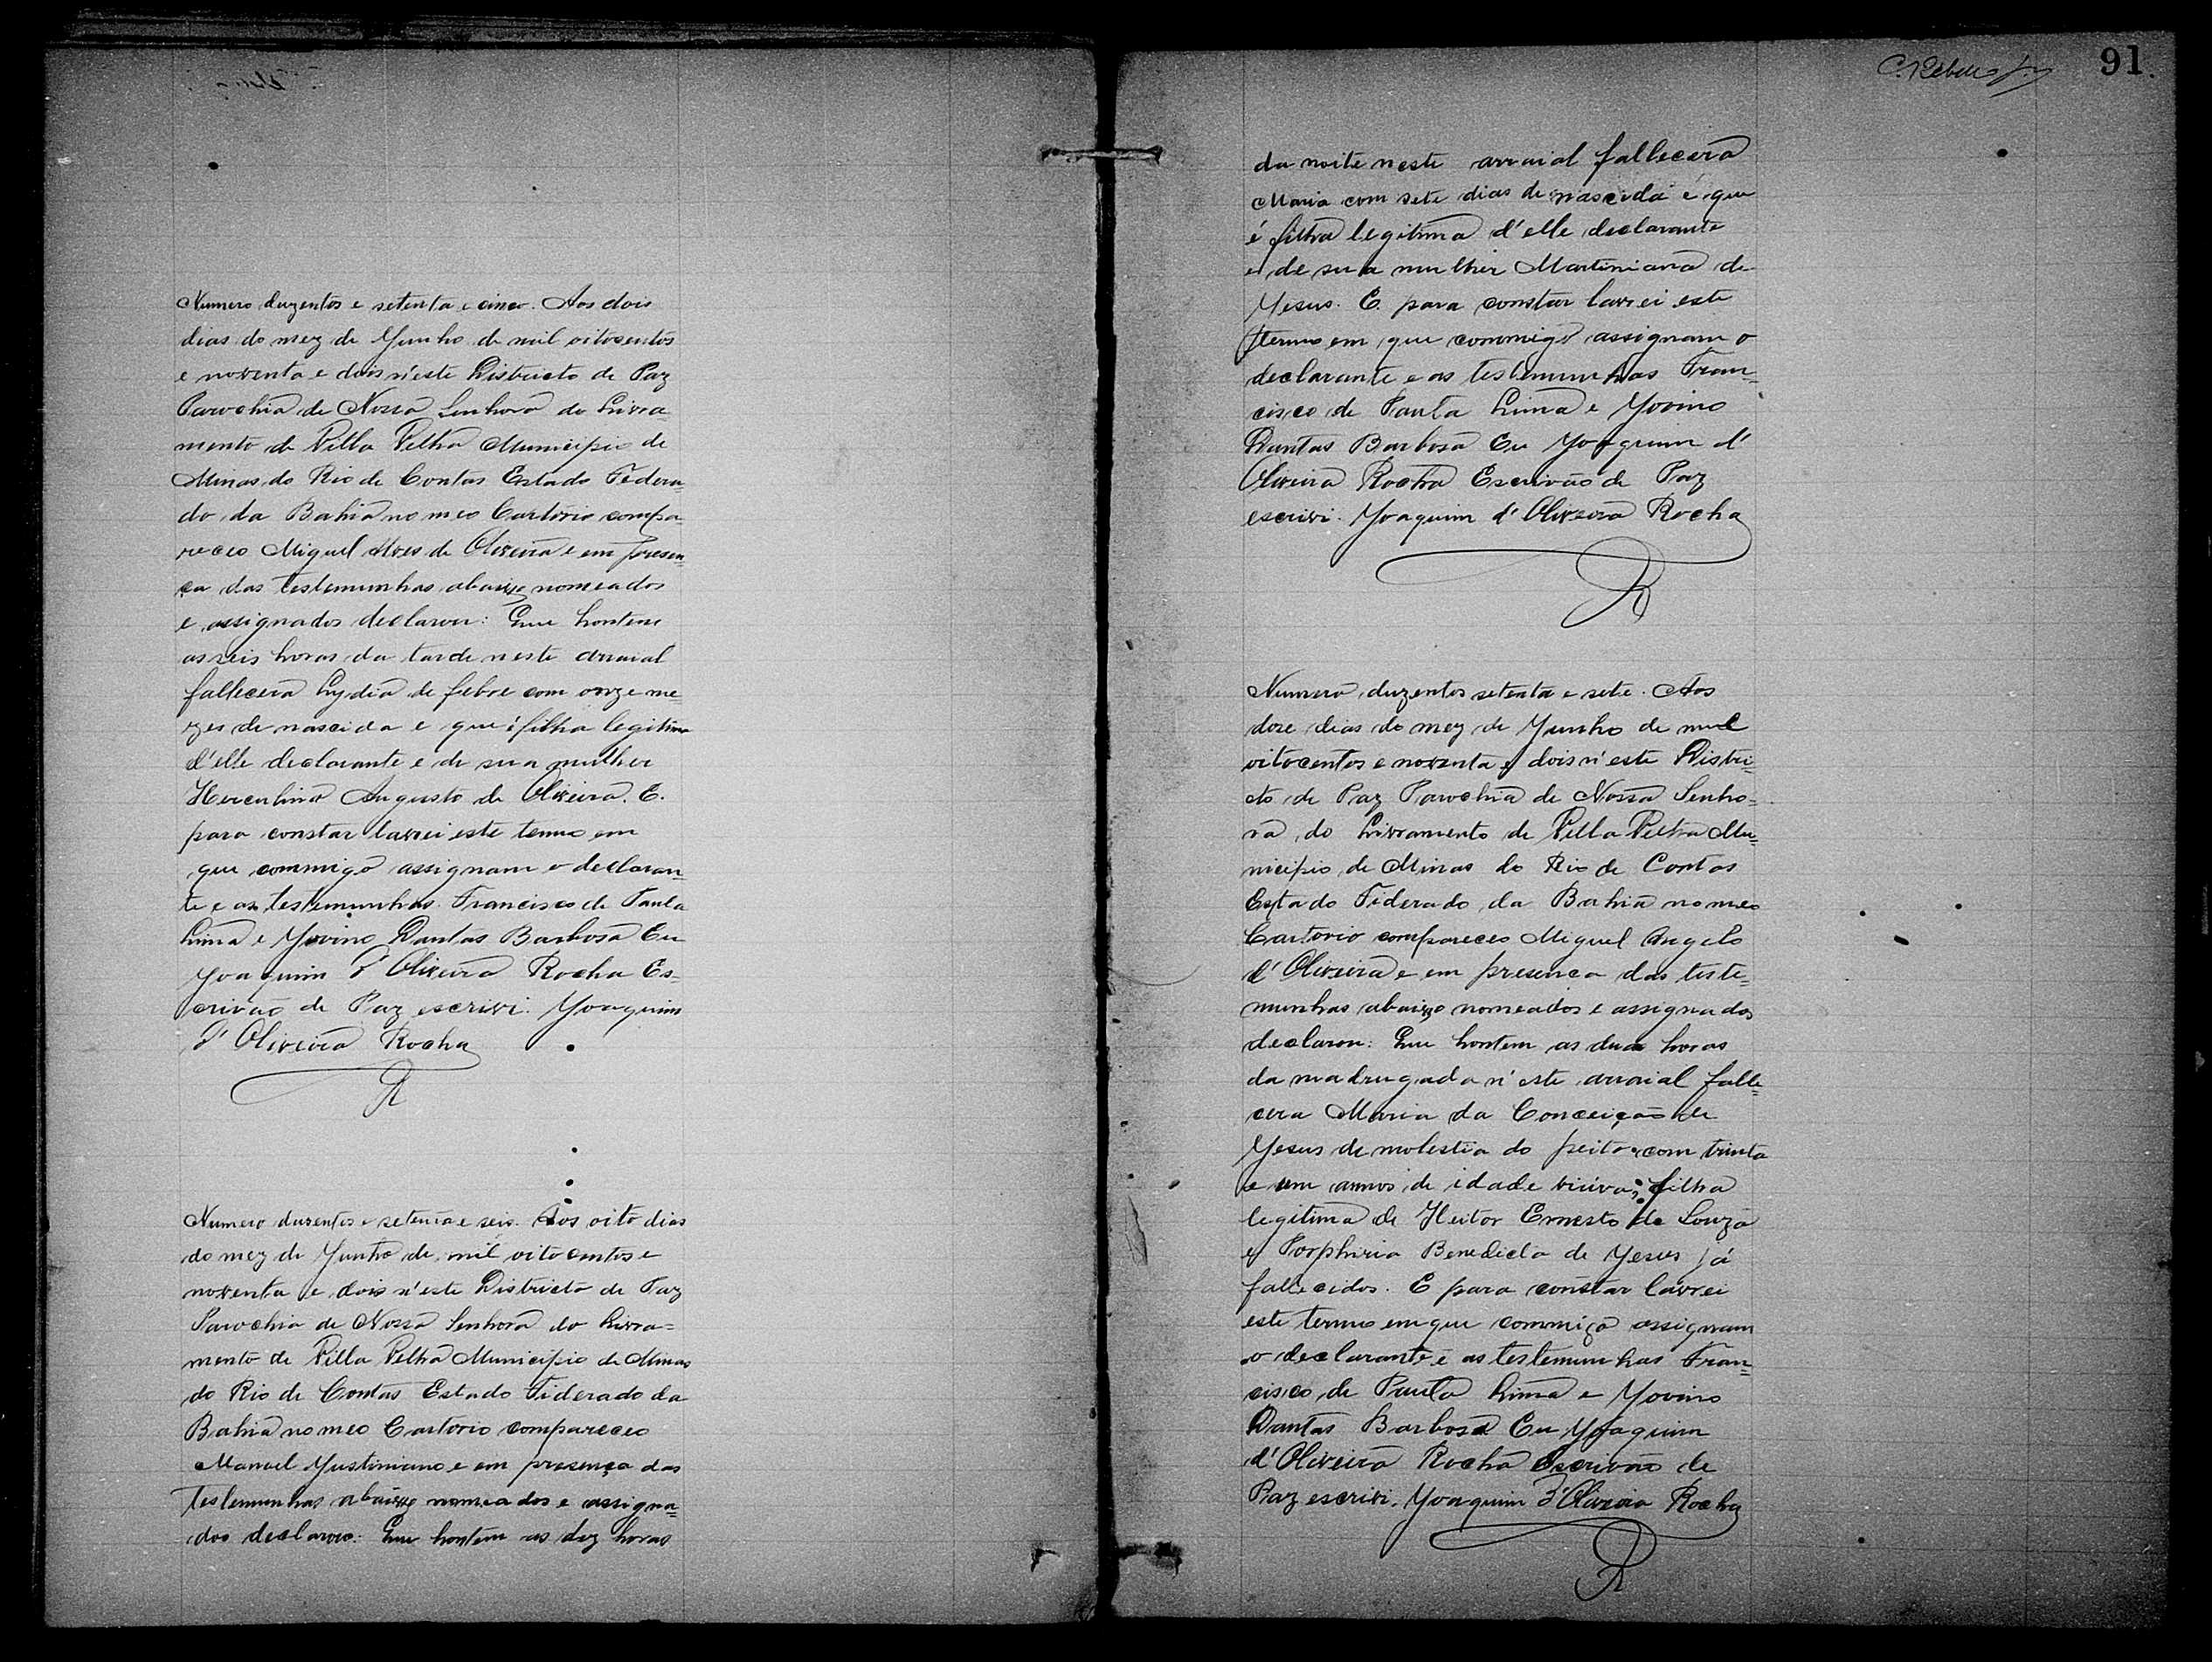 Numero duzentos e setenta e cinco. Aos dois
dias do mez de Junho de mil oitocentos
e noventa e dois n'este Districto de Paz
Parochia de Nossa Senhora do Livra
mento de Villa Velha Municipio de
Minas do Rio de Contas Estado Federa-
do da Bahia no meo Cartorio compa-
receo Miguel Alves de Oliveira e em presen-
ça das testemunhas abaixo nomeados
e assignados declarou: Que hontem
as seis horas da tarde neste arraial
fallecera Lydia de febre com onze me-
zes de nascida e que é filha legitima
d'elle declarante e de sua mulher
Herculina Augusto de Oliveira. E.
para constar lavrei este termo em
que commigo assignam o declaran-
te e as testemunhas Francisco de Paula
Lima e Jovino Dantas Barbosa Eu
Joaquim d'Oliveira Rocha Es-
crivão de Paz escrivi. Joaquim
d'Oliveira Rocha
R
Numero duzentos e setenta e seis. Aos oito dias
do mez de Junho de mil oitocentos e
noventa e dois n'este Districto de Paz
Parochia de Nossa Senhora do Livra=
mento de Villa Velha Municipio de Minas
do Rio de Contas Estado Federado da
Bahia no meo Cartorio compareceo
Manuel Justiniano e em presença das
testemunhas abaixo nomeados e assigna=
dos declarou: Que hontem as dez horas
C. Rebello Jr. 91.
da noite neste arraial fallecera
Maria com sete dias de nascida e que
é filha legitima d'elle declarante
e de sua mulher Martiniana de
Jesus. E. para constar lavrei este
termo em que commigo assignam o
declarante e as testemunhas Fran=
cisco de Paula Lima e Jovino
Dantas Barbosa Eu Joaquim d'
Oliveira Rocha Escrivão de Paz
escrivi. Joaquim d'Oliveira Rocha
R
Numero duzentos setenta e sete. Aos
doze dias do mez de Junho de mil
oitocentos e noventa e dois n'este Distri=
cto de Paz Parochia de Nossa Senho=
ra do Livramento de Villa Velha Mu=
nicipio de Minas do Rio de Contas
Estado Federado da Bahia no meo
Cartorio compareceo Miguel Angelo
d'Oliveira e em presença das teste=
munhas abaixo nomeados e assignados
declarou: Que hontem as duas horas
da madrugada n'este arraial falle=
cera Maria da Conceição de
Jesus de molestia do peito com trinta
e um annos de idade viuva, filha
legitima de Heitor Ernesto de Souza
e Porphiria Benedicta de Jesus já
fallecidos. E para constar lavrei
este termo em que commigo assignam
o declarante e as testemunhas Fran=
cisco de Paula Lima e Jovino
Dantas Barbosa Eu Joaquim
d'Oliveira Rocha Escrivão de
Paz escrivi. Joaquim d'Oliveira Rocha
R